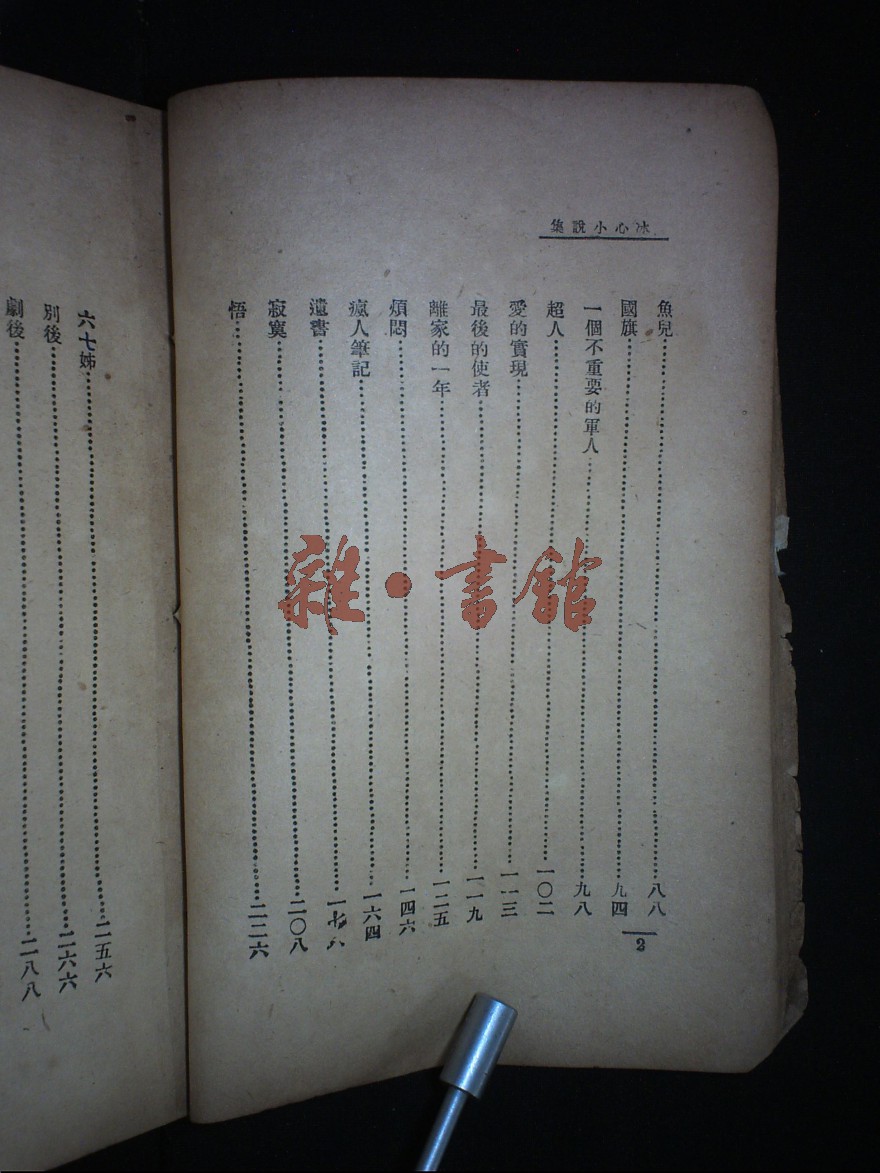 冰心小說集
魚兒……八八
國旗……九四
一個不重要的軍人……九八
超人……一〇二
愛的實現……一一三
最後的使者……一一九
離家的一年……一二五
煩悶……一四六
瘋人筆記……一六四
遺書……一七
寂寞……二〇八
悟……二二六
2
六七姊……二五六
別後……二六六
劇後……二八八
雜·書館